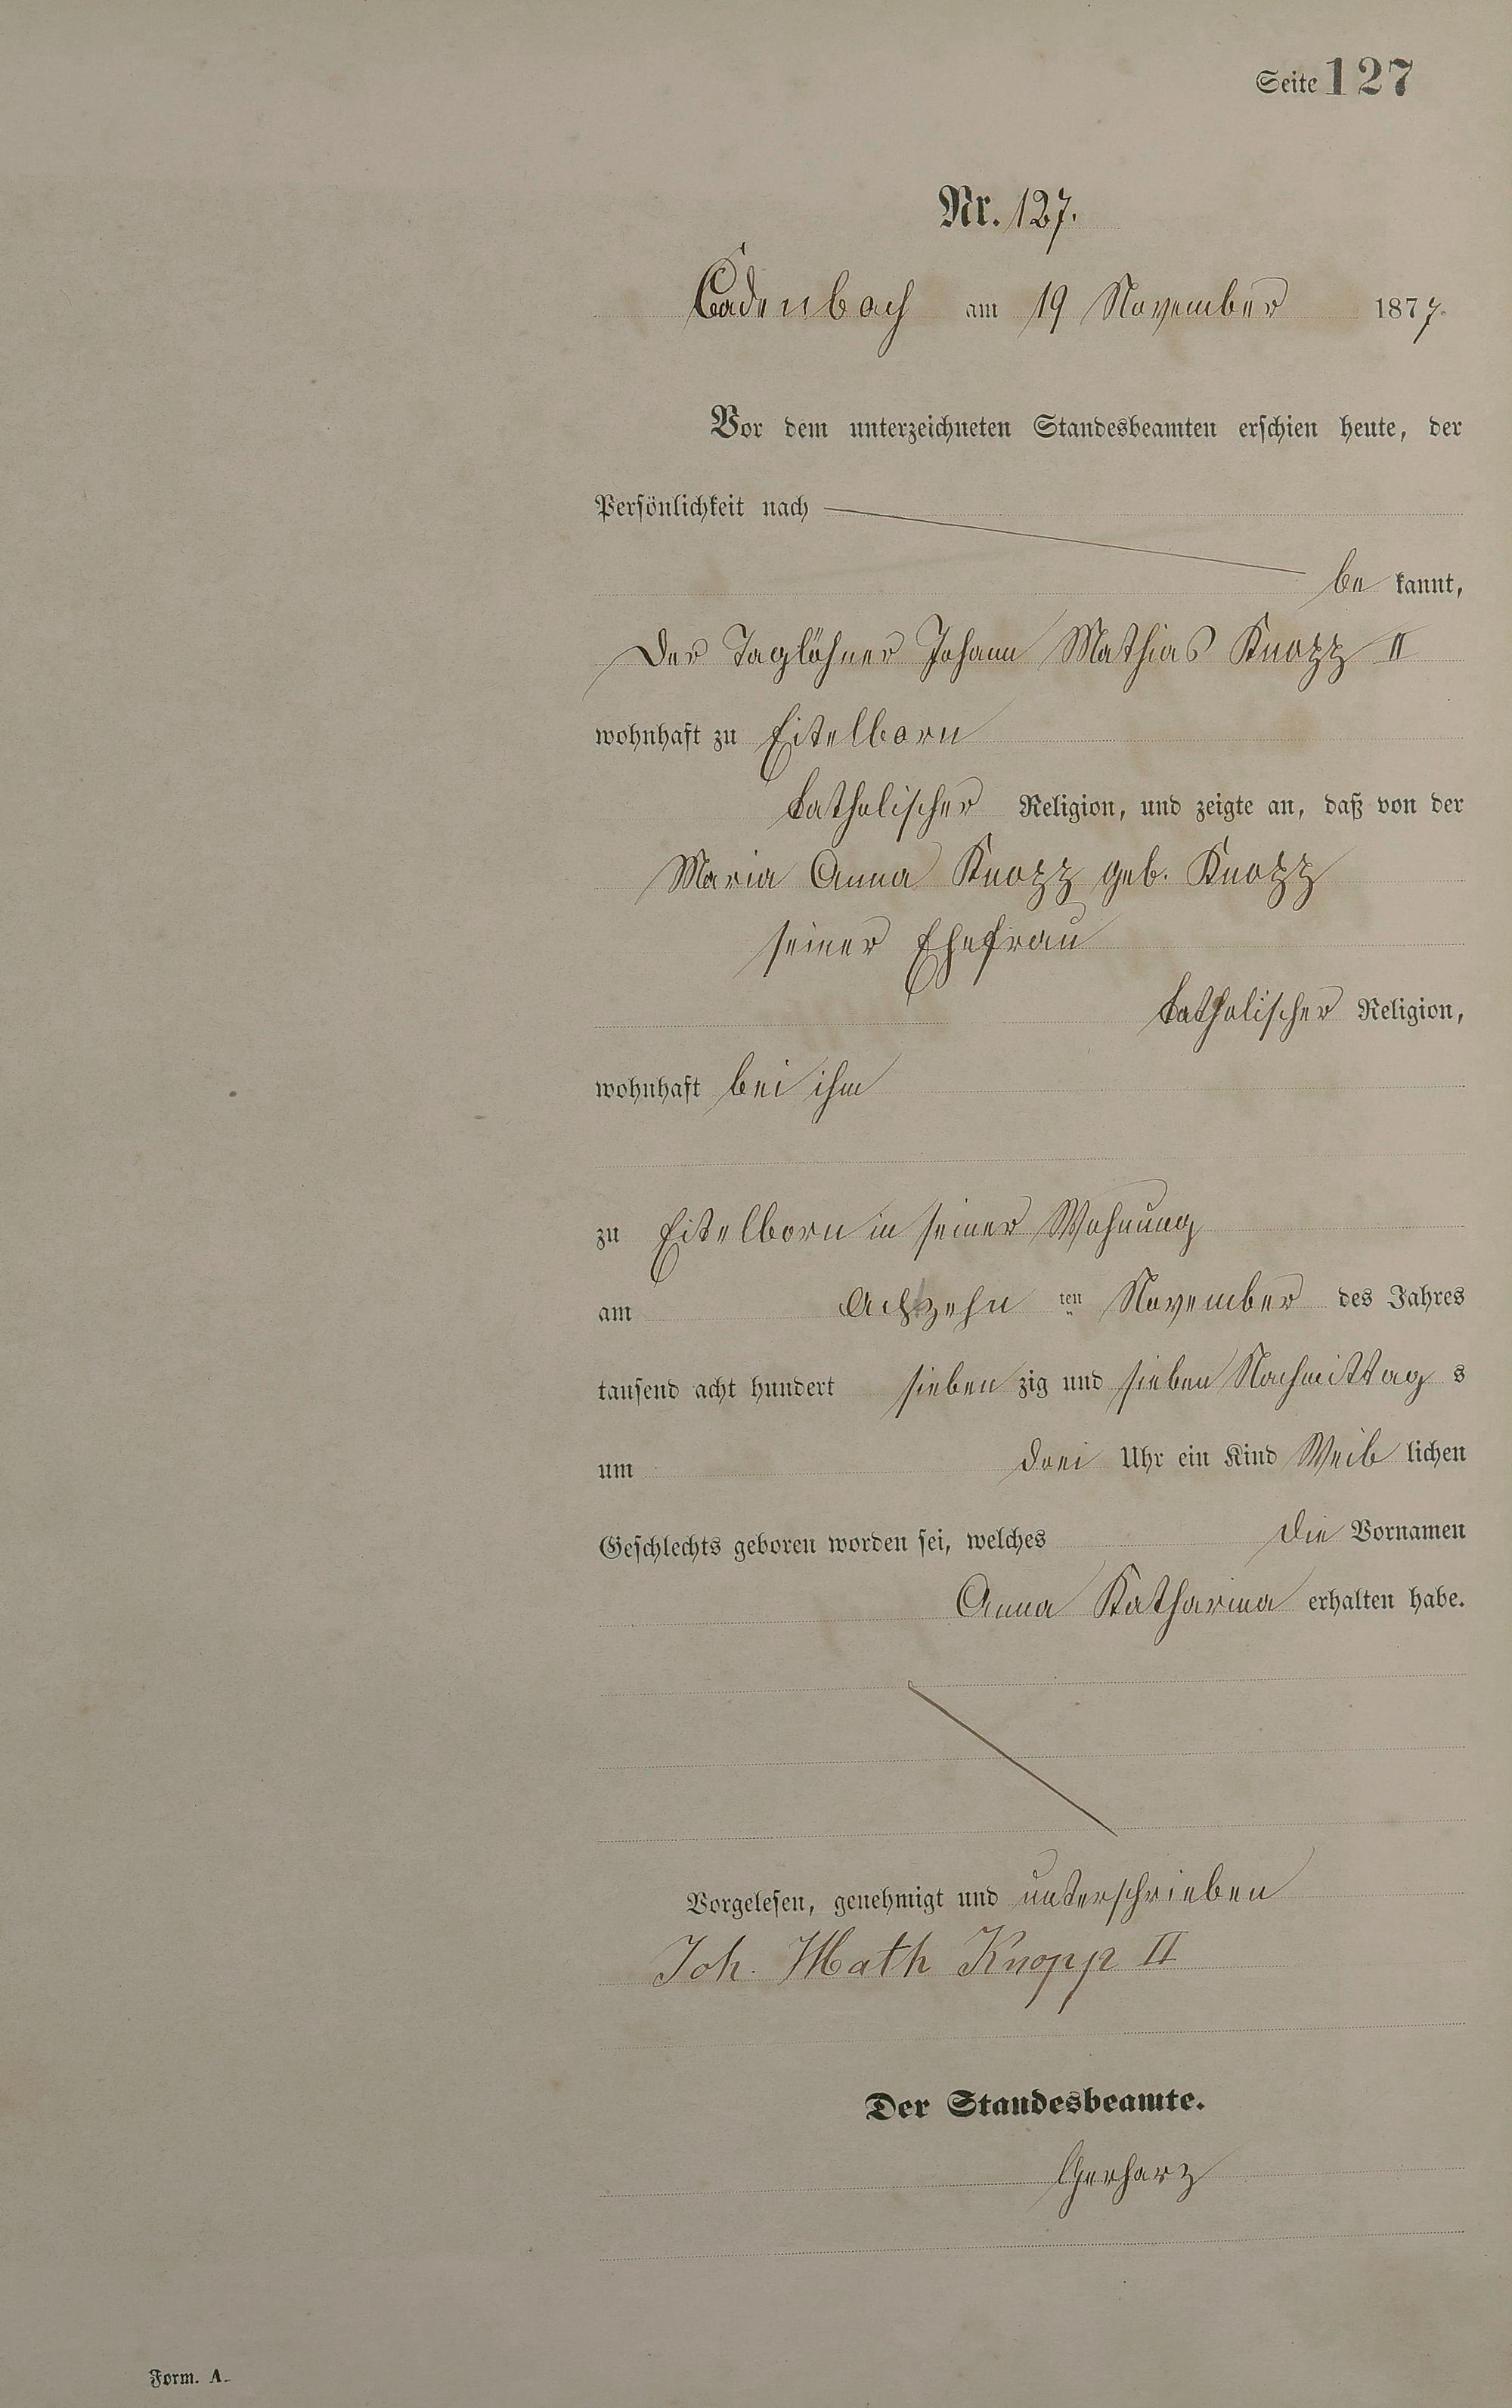 Seite 127
Nr. 127.
Cadenbach am 19 November 1877.
Vor dem unterzeichneten Standesbeamten erschien heute, der
Persönlichkeit nach
be kannt,
Der Taglöhner Johann Mathias Knopp II
wohnhaft zu Eitelborn
katholischer Religion, und zeigte an, daß von der
Maria Anna Knopp geb. Knopp
seiner Ehefrau
katholischer Religion,
wohnhaft bei ihm
zu Eitelborn in seiner Wohnung
am Achtzehn ten November des Jahres
tausend acht hundert sieben zig und sieben Nachmittag s
um drei Uhr ein Kind Weib lichen
Geschlechts geboren worden sei, welches die Vornamen
Anna Katharina erhalten habe.
Vorgelesen, genehmigt und unterschrieben
Joh. Math Knopp II
Der Standesbeamte.
Gerharz
Form. A.